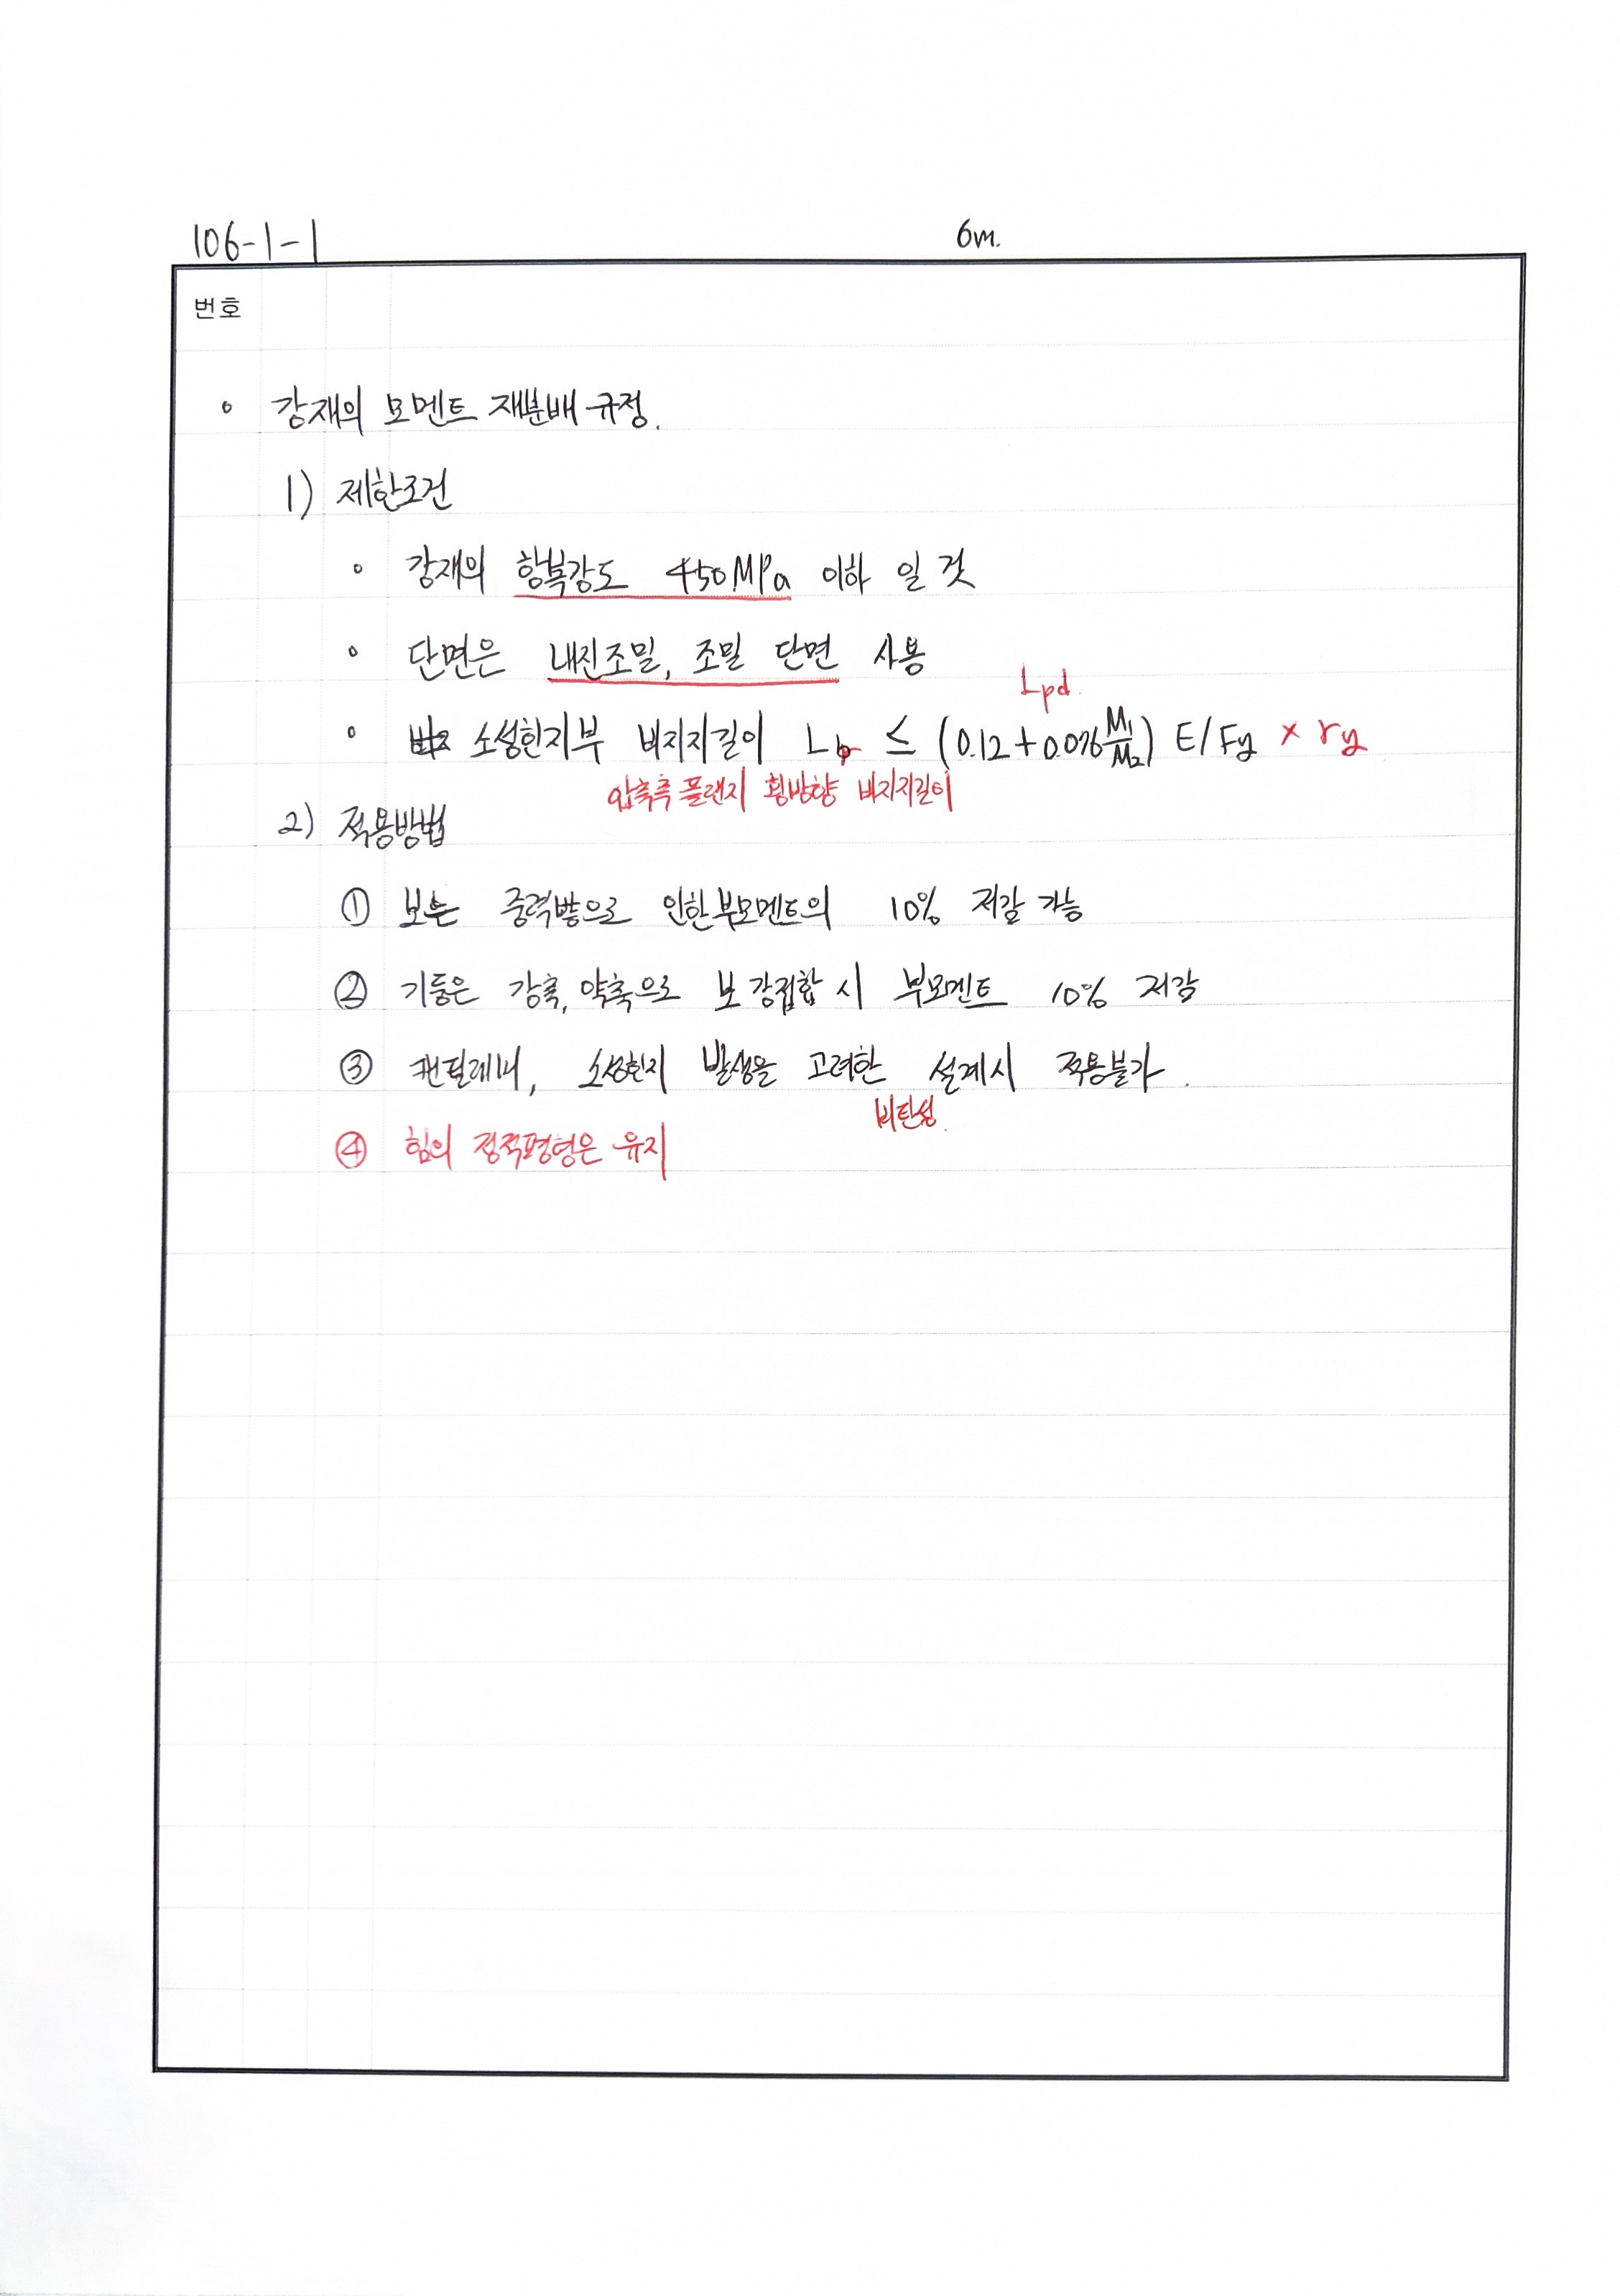 106-1-1
6m.
번호
∘ 강재의 모멘트 재분배 규정.
1) 제한조건
∘ 강재의 항복강도 450MPa 이하 일 것
∘ 단면은 내진조밀, 조밀 단면 사용
Lpd
∘ 소성힌지부 비지지길이 Lb ≤ (0.12+0.076 M1/M2) E/Fy × ry
압축측 플랜지 횡방향 비지지길이
2) 적용방법
① 보는 중력방으로 인한 부모멘트의 10% 저감 가능
② 기둥은 강축, 약축으로 보 강접합 시 부모멘트 10% 저감
③ 캔틸레버, 소성힌지 발생을 고려한 설계시 적용불가.
비탄성.
④ 힘의 정적평형은 유지